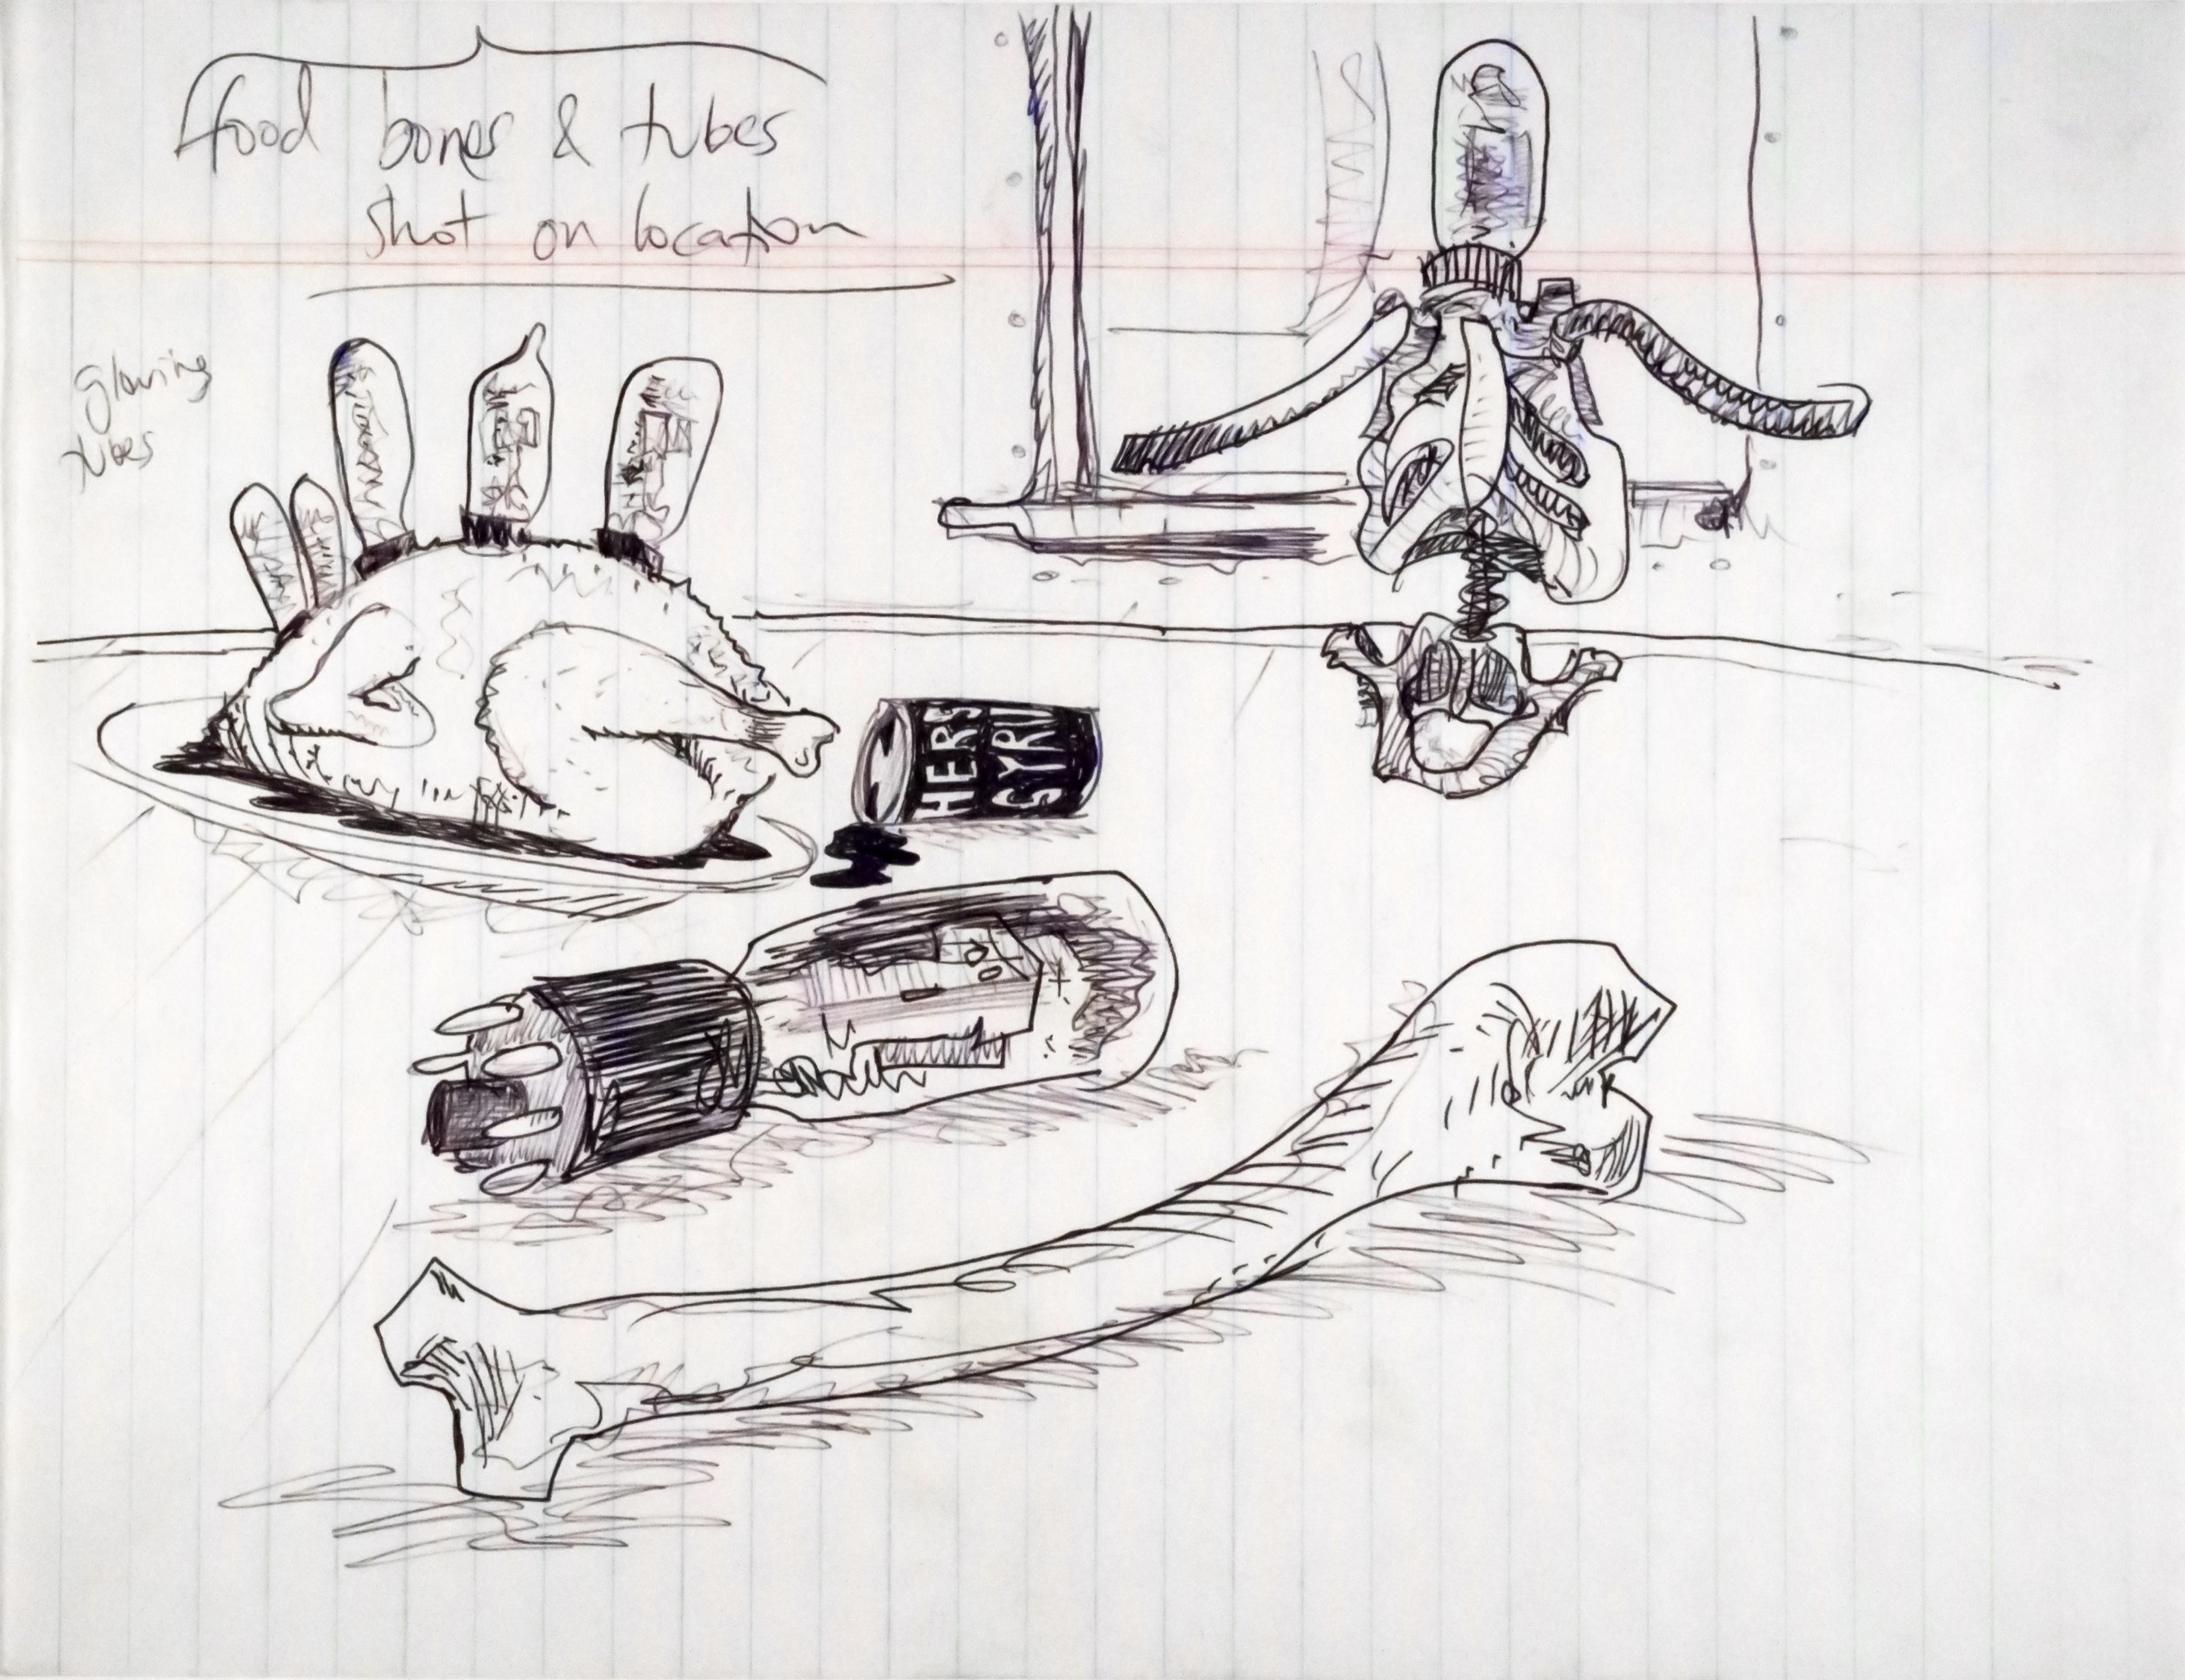 food bones & tubes
shot on location
glowing
tubes
HERS
SYRU